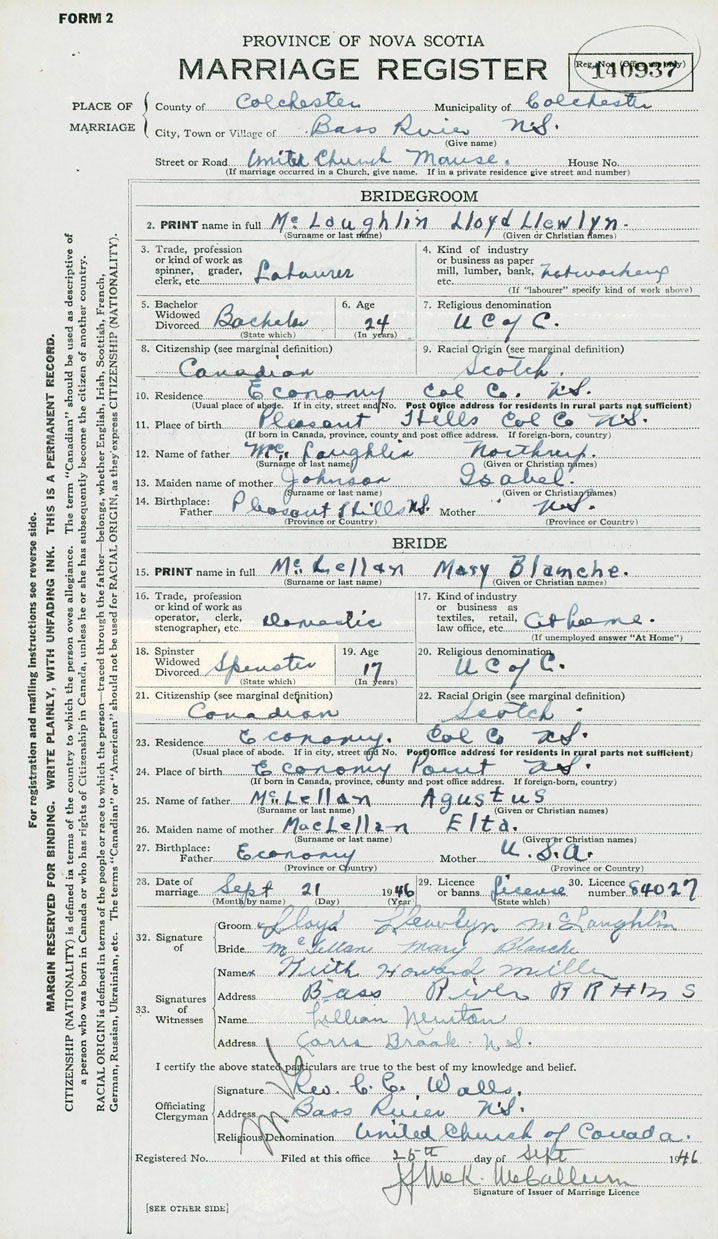 FORM 2
PROVINCE OF NOVA SCOTIA
MARRIAGE REGISTER
Reg. No. (Office use only)
140937
PLACE OF MARRIAGE
County of Colchester Municipality of Colchester
City, Town or Village of Bass River N.S.
(Give name)
Street or Road United Church Manse. House No.
(If marriage occurred in a Church, give name. If in a private residence give street and number)
BRIDEGROOM
2. PRINT name in full McLaughlin Lloyd Llewlyn.
(Surname or last name) (Given or Christian names)
3. Trade, profession or kind of work as spinner, grader, clerk, etc. Labourer
4. Kind of industry or business as paper mill, lumber, bank, etc.
(If "labourer" specify kind of work above)
5. Bachelor Widowed Divorced Bachelor
(State which)
6. Age 24
(In years)
7. Religious denomination U C of C.
8. Citizenship (see marginal definition) Canadian
9. Racial Origin (see marginal definition) Scotch.
10. Residence Economy Col Co. N.S.
(Usual place of abode. If in city, street and No. Post Office address for residents in rural parts not sufficient)
11. Place of birth Pleasant Hills Col Co N.S.
(If born in Canada, province, county and post office address. If foreign-born, country)
12. Name of father McLaughlin Northrup.
(Surname or last name) (Given or Christian names)
13. Maiden name of mother Johnson Isabel.
(Surname or last name) (Given or Christian names)
14. Birthplace: Father Pleasant Hills N.S. Mother N.S.
(Province or Country) (Province or Country)
BRIDE
15. PRINT name in full McLellan Mary Blanche.
(Surname or last name) (Given or Christian names)
16. Trade, profession or kind of work as operator, clerk, stenographer, etc. Domestic
17. Kind of industry or business as textiles, retail, law office, etc. At home.
(If unemployed answer "At Home")
18. Spinster Widowed Divorced Spinster
(State which)
19. Age 17
(In years)
20. Religious denomination U C of C.
21. Citizenship (see marginal definition) Canadian
22. Racial Origin (see marginal definition) Scotch
23. Residence Economy. Col Co N.S.
(Usual place of abode. If in city, street and No. Post Office address for residents in rural parts not sufficient)
24. Place of birth Economy Point N.S.
(If born in Canada, province, county and post office address. If foreign-born, country)
25. Name of father McLellan Agustus
(Surname or last name) (Given or Christian names)
26. Maiden name of mother MacLellan Elta.
(Surname or last name) (Given or Christian names)
27. Birthplace: Father Economy Mother U.S.A.
(Province or Country) (Province or Country)
28. Date of marriage Sept 21 1946
(Month by name) (Day) (Year)
29. Licence or banns License
(State which)
30. Licence number 84027
32. Signature of
Groom Lloyd Llewlyn McLaughlin
Bride McLellan Mary Blanche
33. Signatures of Witnesses
Name Keith Howard Miller
Address Bass River R R # 1 N S
Name Lillian Newton
Address Carrs Brook. N.S.
I certify the above stated particulars are true to the best of my knowledge and belief.
Officiating Clergyman
Signature Rev. C. C. Walls,
Address Bass River N.S.
Religious Denomination United Church of Canada.
Registered No. Filed at this office 25th day of Sept 1946
McCallum
Signature of Issuer of Marriage Licence
[SEE OTHER SIDE]
For registration and mailing instructions see reverse side.
MARGIN RESERVED FOR BINDING. WRITE PLAINLY, WITH UNFADING INK. THIS IS A PERMANENT RECORD.
CITIZENSHIP (NATIONALITY) is defined in terms of the country to which the person owes allegiance. The term "Canadian" should be used as descriptive of
a person who was born in Canada or who has rights of Citizenship in Canada, unless he or she has subsequently become the citizen of another country.
RACIAL ORIGIN is defined in terms of the people or race to which the person—traced through the father—belongs, whether English, Irish, Scottish, French,
German, Russian, Ukrainian, etc. The terms "Canadian" or "American" should not be used for RACIAL ORIGIN, as they express CITIZENSHIP (NATIONALITY).